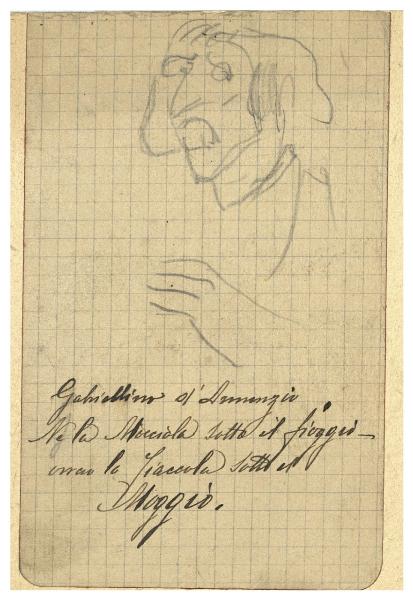 Gabriellino d'Annunzio
Ne la Micciola sotto il fioggio -
ovvero la Fiaccola sotto il
Moggio.